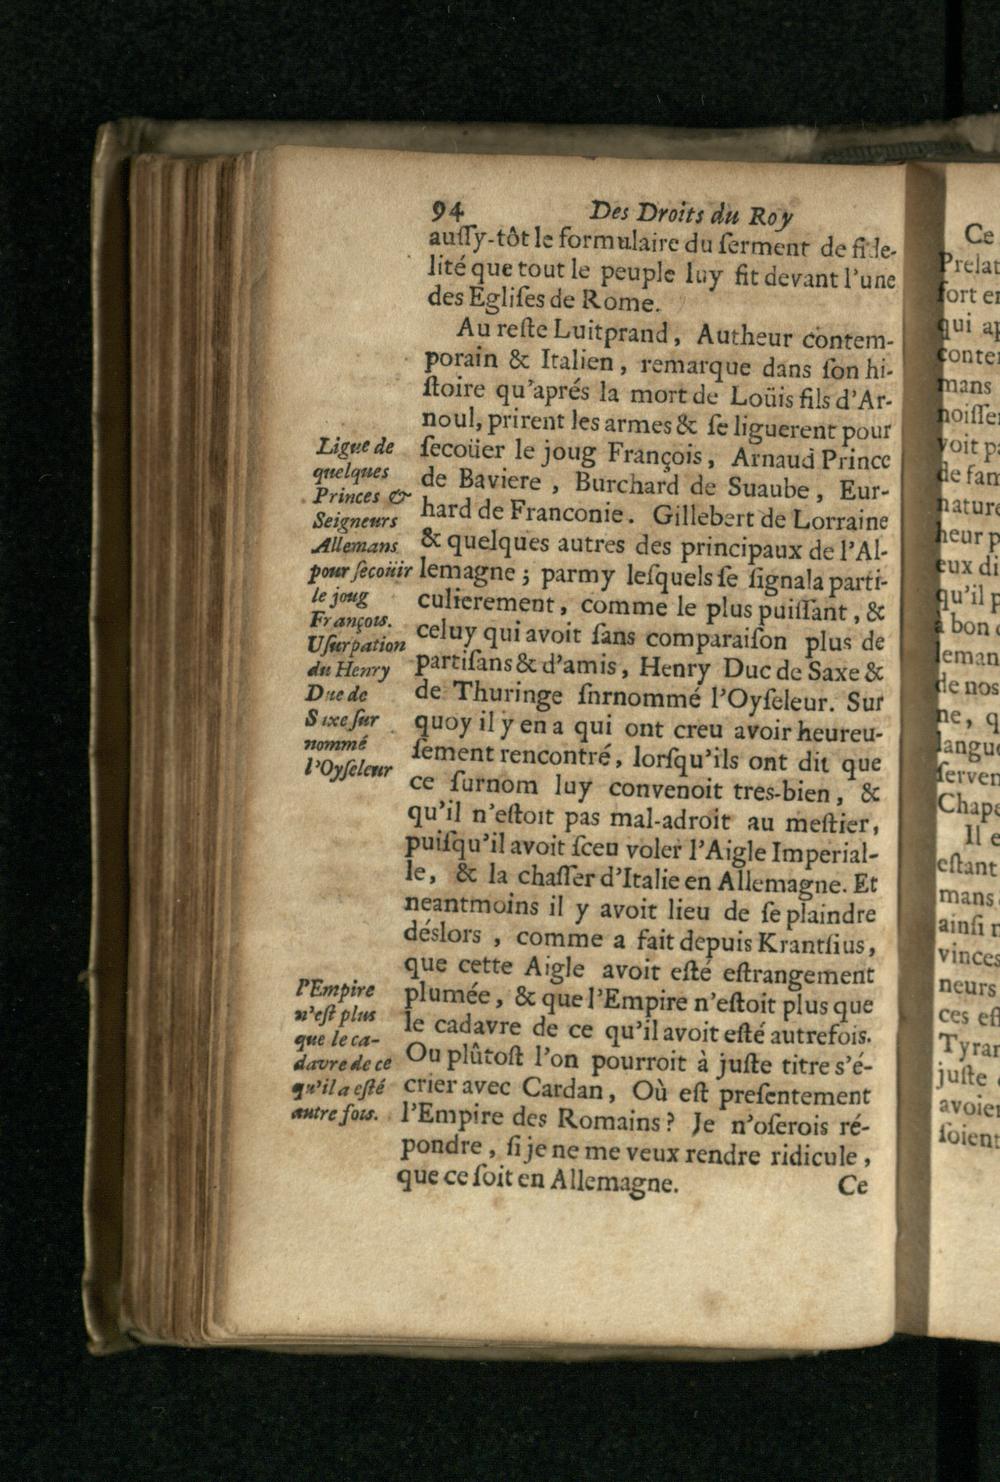 94 Des Droits du Roy
auſſy-tôt le formulaire du ſerment de fide-
lité que tout le peuple luy fit devant l'une
des Egliſes de Rome.
Au reſte Luitprand, Autheur contem-
porain & Italien, remarque dans ſon hi-
ſtoire qu'aprés la mort de Loüis fils d'Ar-
noul, prirent les armes & ſe liguerent pour
ſecoüer le joug François, Arnaud Prince
de Baviere, Burchard de Suaube, Eur-
hard de Franconie. Gillebert de Lorraine
& quelques autres des principaux de l'Al-
lemagne; parmy leſquels ſe ſignala parti-
culierement, comme le plus puiſſant, &
celuy qui avoit ſans comparaiſon plus de
partiſans & d'amis, Henry Duc de Saxe &
de Thuringe ſnrnommé l'Oyſeleur. Sur
quoy il y en a qui ont creu avoir heureu-
ſement rencontré, lorſqu'ils ont dit que
ce ſurnom luy convenoit tres-bien, &
qu'il n'eſtoit pas mal-adroit au meſtier,
puiſqu'il avoit ſceu voler l'Aigle Imperial-
le, & la chaſſer d'Italie en Allemagne. Et
neantmoins il y avoit lieu de ſe plaindre
déslors, comme a fait depuis Krantſius,
que cette Aigle avoit eſté eſtrangement
plumée, & que l'Empire n'eſtoit plus que
le cadavre de ce qu'il avoit eſté autrefois.
Ou plûtoſt l'on pourroit à juſte titre s'é-
crier avec Cardan, Où eſt preſentement
l'Empire des Romains? Je n'oſerois ré-
pondre, ſi je ne me veux rendre ridicule,
que ce ſoit en Allemagne.
Ce
Ligue de
quelques
Princes &
Seigneurs
Allemans
pour ſecoüir
le joug
François.
Uſurpation
du Henry
Duc de
Saxe ſur
nommé
l'Oyſeleur
l'Empire
n'eſt plus
que le ca-
davre de ce
qu'il a eſté
autre fois.
Ce
Prelat
fort en
qui ap
conte
mans
noiſſe
voit pa
de fam
nature
heur p
eux di
qu'il p
à bon
leman
de nos
ne, q
langue
ſerven
Chape
Il e
eſtant
mans
ainſi n
vinces
neurs
ces eſ
Tyran
juſte
avoien
ſoient